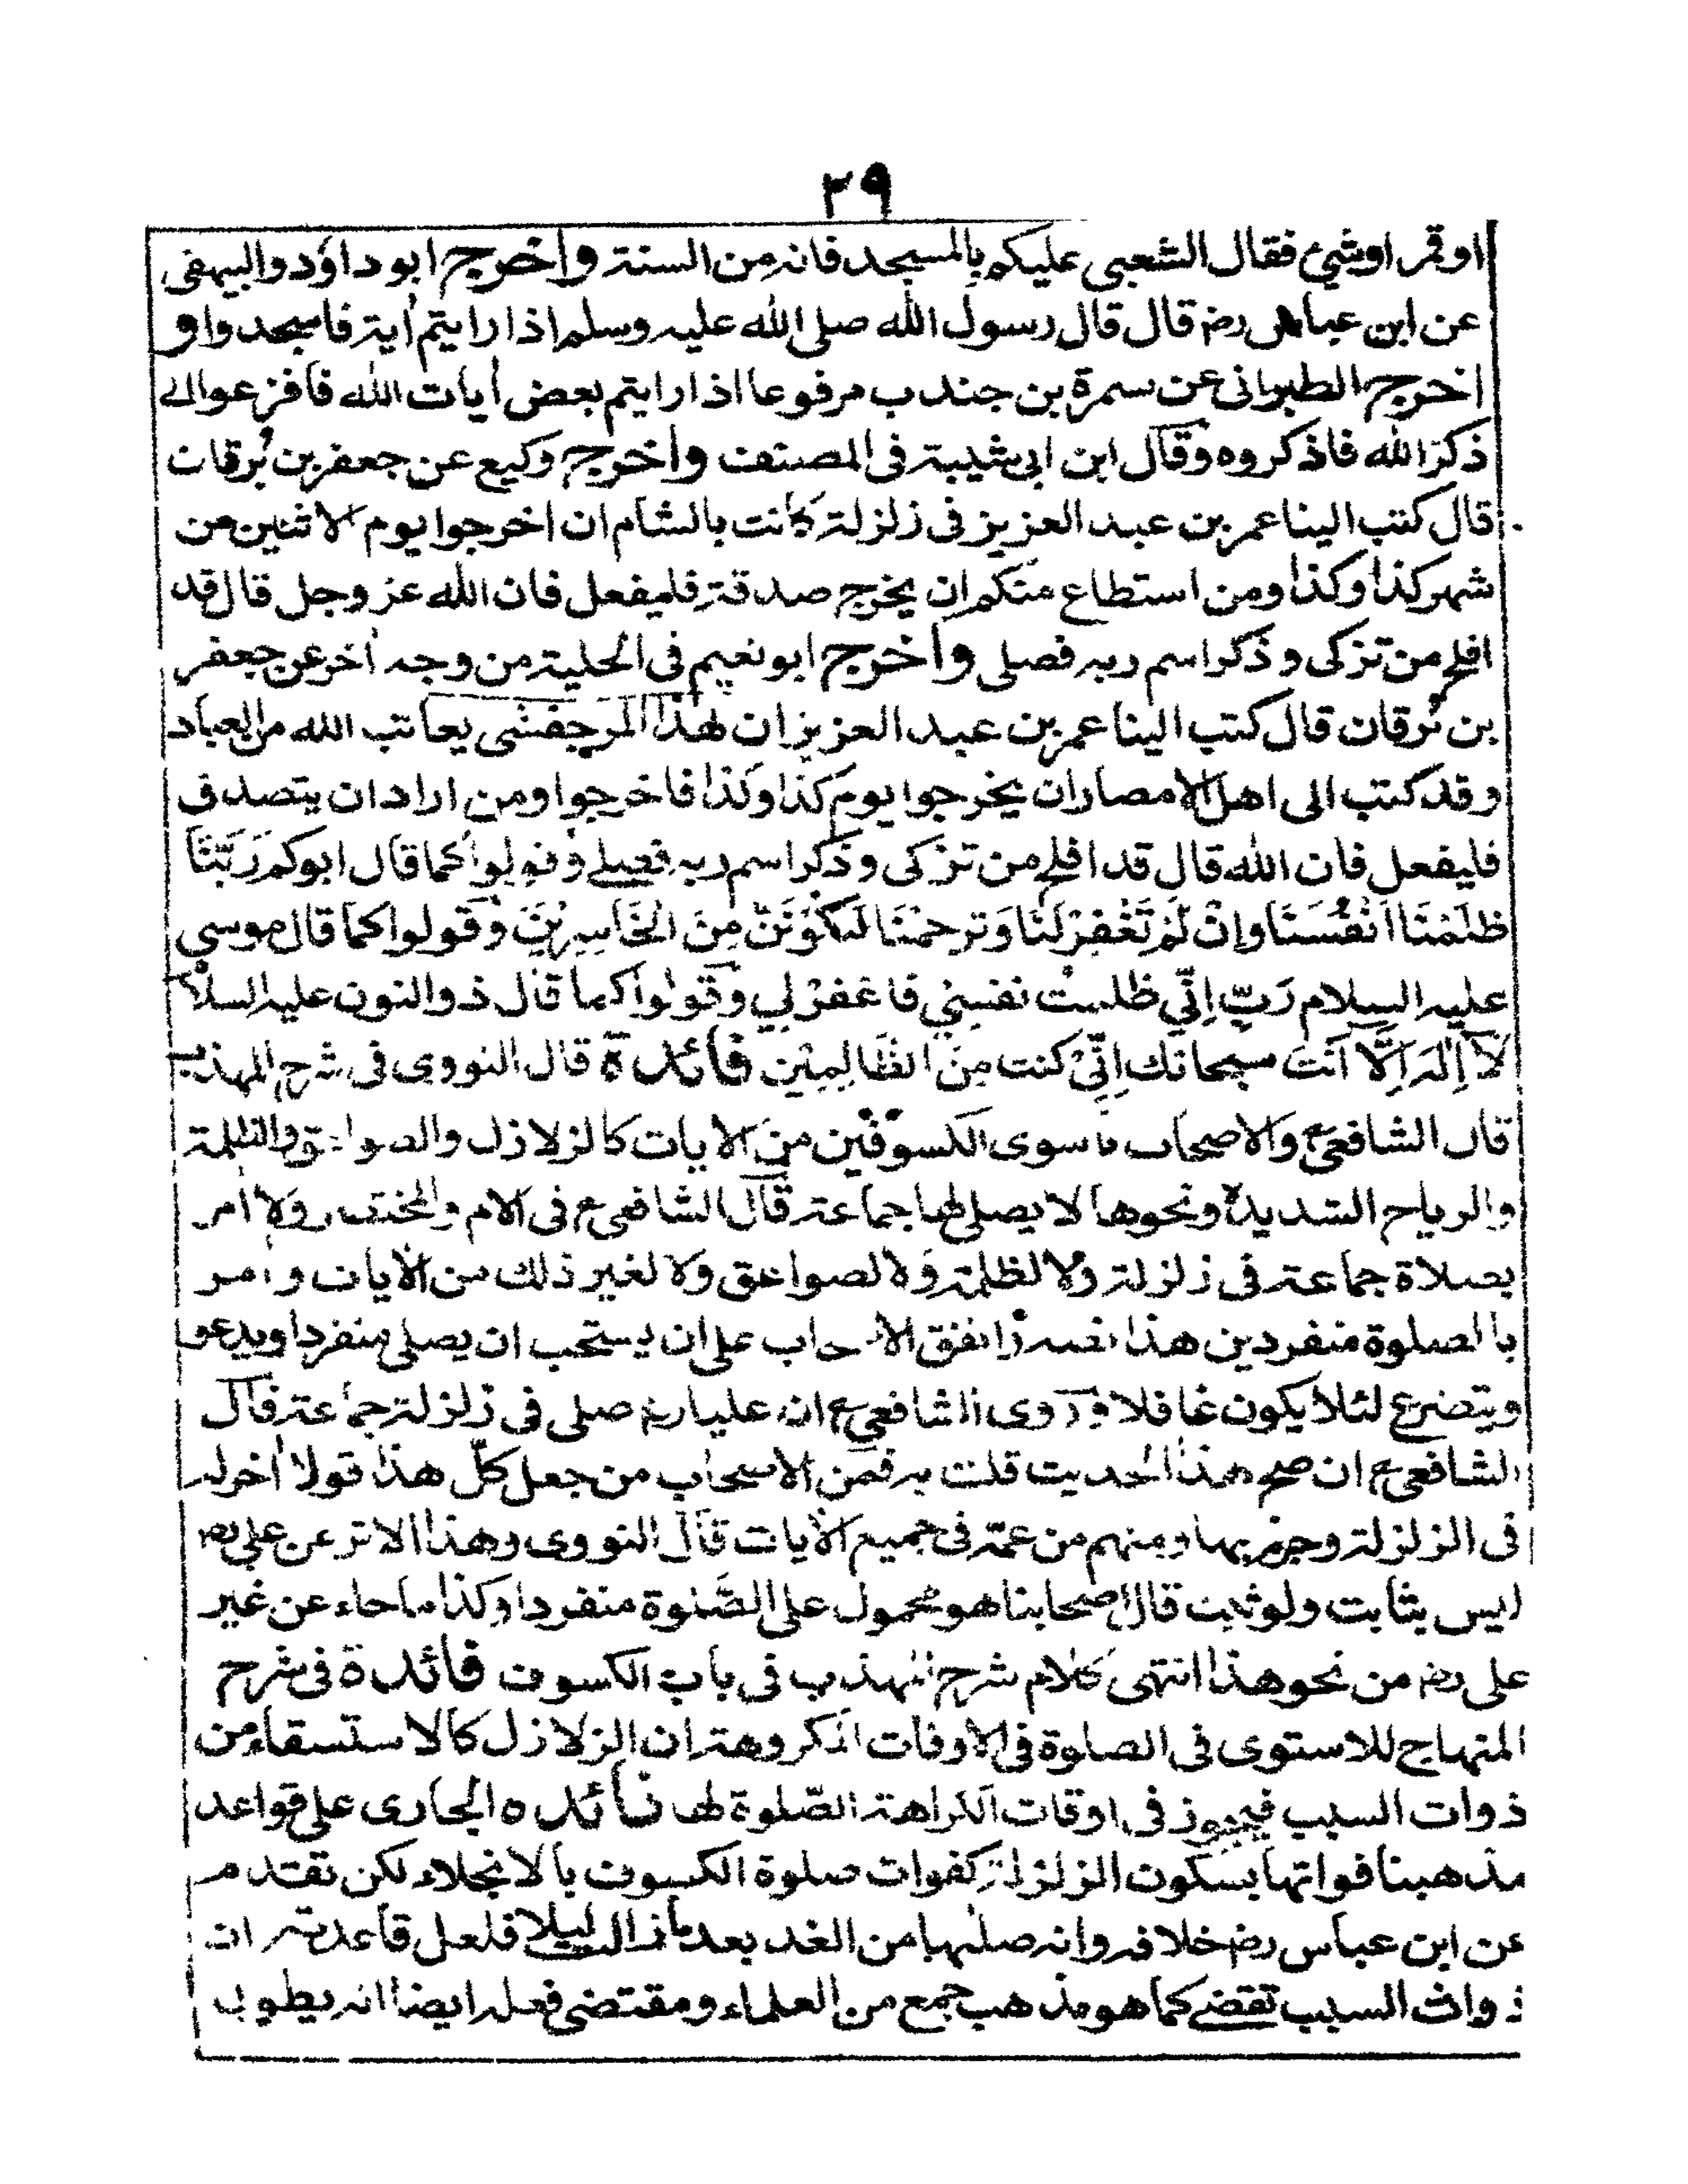 ٢٩
او قمر او شئ فقال الشعبى عليكم بالمسجد فانه من السنة واخرج ابو داؤد والبيهقى
عن ابن عباس رضه قال قال رسول الله صلى الله عليه وسلم اذا رايتم أية فاسجدوا و
اخرج الطبرانى عن سمرة بن جندب مرفوعا اذا رايتم بعض أيات الله فافزعوا الے
ذكر الله فاذكروه وقال ابن ابى شيبة فى المصنف واخرج وكيع عن جعفر بن بُرقان
قال كتب الينا عمر بن عبد العزيز فى زلزلة كانت بالشام ان اخرجوا يوم الاثنين من
شهر كذا وكذا ومن استطاع منكم ان يخرج صدقة فليفعل فان الله عز وجل قال قد
افلح من تزكى وذكر اسم ربه فصلى واخرج ابو نعيم فى الحلية من وجه أخر عن جعفر
بن بُرقان قال كتب الينا عمر بن عبد العزيز ان هذا الرجف شى يعاتب الله من العباد
وقد كتب الى اهل الامصار ان يخرجوا يوم كذا وكذا فاخرجوا ومن اراد ان يتصدق
فليفعل فان الله قال قد افلح من تزكى وذكر اسم ربه فصلے وقولوا كما قال ابوكم رَبَّنَا
ظَلَمْنَا اَنْفُسَنَا وَاِنْ لَمْ تَغْفِرْ لَنَا وَتَرحَمْنَا لَنَكُوْنَنَّ مِنَ الْخَاسِرِيْنَ وقولوا كما قال موسى
عليه السلام رَبِّ اِنِّي ظلمت نفسِيْ فاغفرْ لِي وقولوا كما قال ذو النون عليه السلام
لَا اِلٰهَ اِلَّا اَنْتَ سبحانك اِنِّيْ كنت مِنَ الظَّالِمِيْن فائدة قال النووى فى شرح المهذب
قال الشافعىؒ والاصحاب ما سوى الكسوفين من الايات كالزلازل والصواعق والظلمة
والرياح الشديدة ونحوها لا يصلى لها جماعة قال الشافعىؒ فى الام والمختصر ولا أمر
بصلاة جماعة فى زلزلة ولا لظلمة ولا لصواعق ولا لغير ذلك من الأيات وأمر
بالصلوة منفردين هذا نصه واتفق الاصحاب على ان يستحب ان يصلى منفردا ويدعو
ويتضرع لئلا يكون غافلا وروى الشافعىؒ ان عليا رضه صلى فى زلزلة جماعة قال
الشافعىؒ ان صح هذا الحديث قلت به فمن الاصحاب من جعل كلّ هذا قولا أخر له
فى الزلزلة وجزم بها ومنهم من عمّه فى جميع الأيات قال النووى وهذا الاثر عن على رضه
ليس بثابت ولو ثبت قال اصحابنا هو محمول على الصَّلوة منفردا وكذا ما جاء عن غير
على رضه من نحو هذا انتهى كلام شرح المهذب فى باب الكسوف فائدة فى شرح
المنهاج للاسنوى فى الصلوة فى الاوقات المكروهة ان الزلازل كالاستسقاء من
ذوات السبب فيجوز فى اوقات الكراهة الصّلوة لها فائده الجارى على قواعد
مذهبنا فواتها بسكون الزلزلة كفوات صلوة الكسوف بالانجلاء لكن تقدم
عن ابن عباس رضه خلافه وانه صلٰها من الغد بعد ليلا فلعل قاعدته ان
ذوات السبب تقضے كما هو مذهب جمع من العلماء ومقتضى فعله ايضا انه يطول